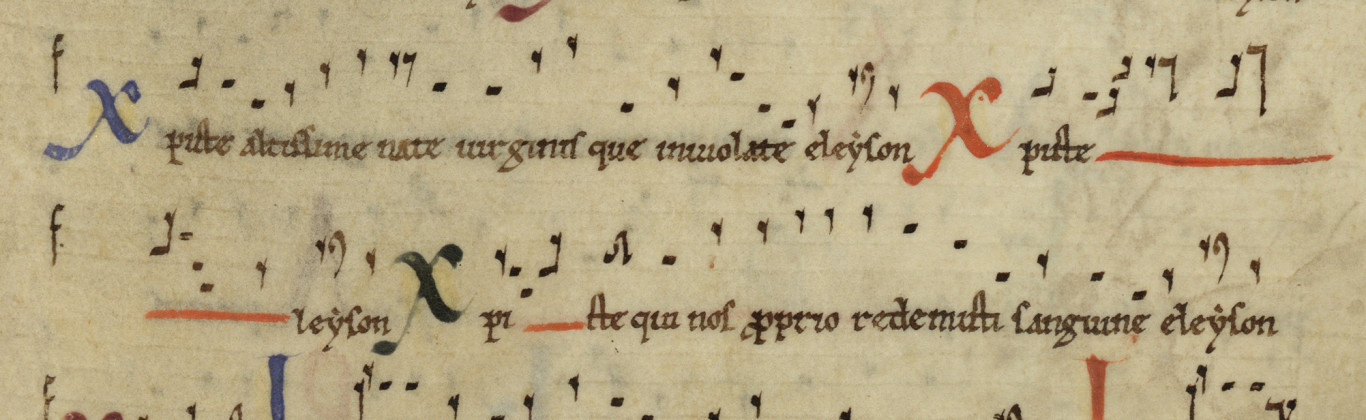 Xpiste altissime nate uirginis que inuiolate eleyson Xpiste
leyson Xpi ste qui nos proprio redemisti sanguine eleyson